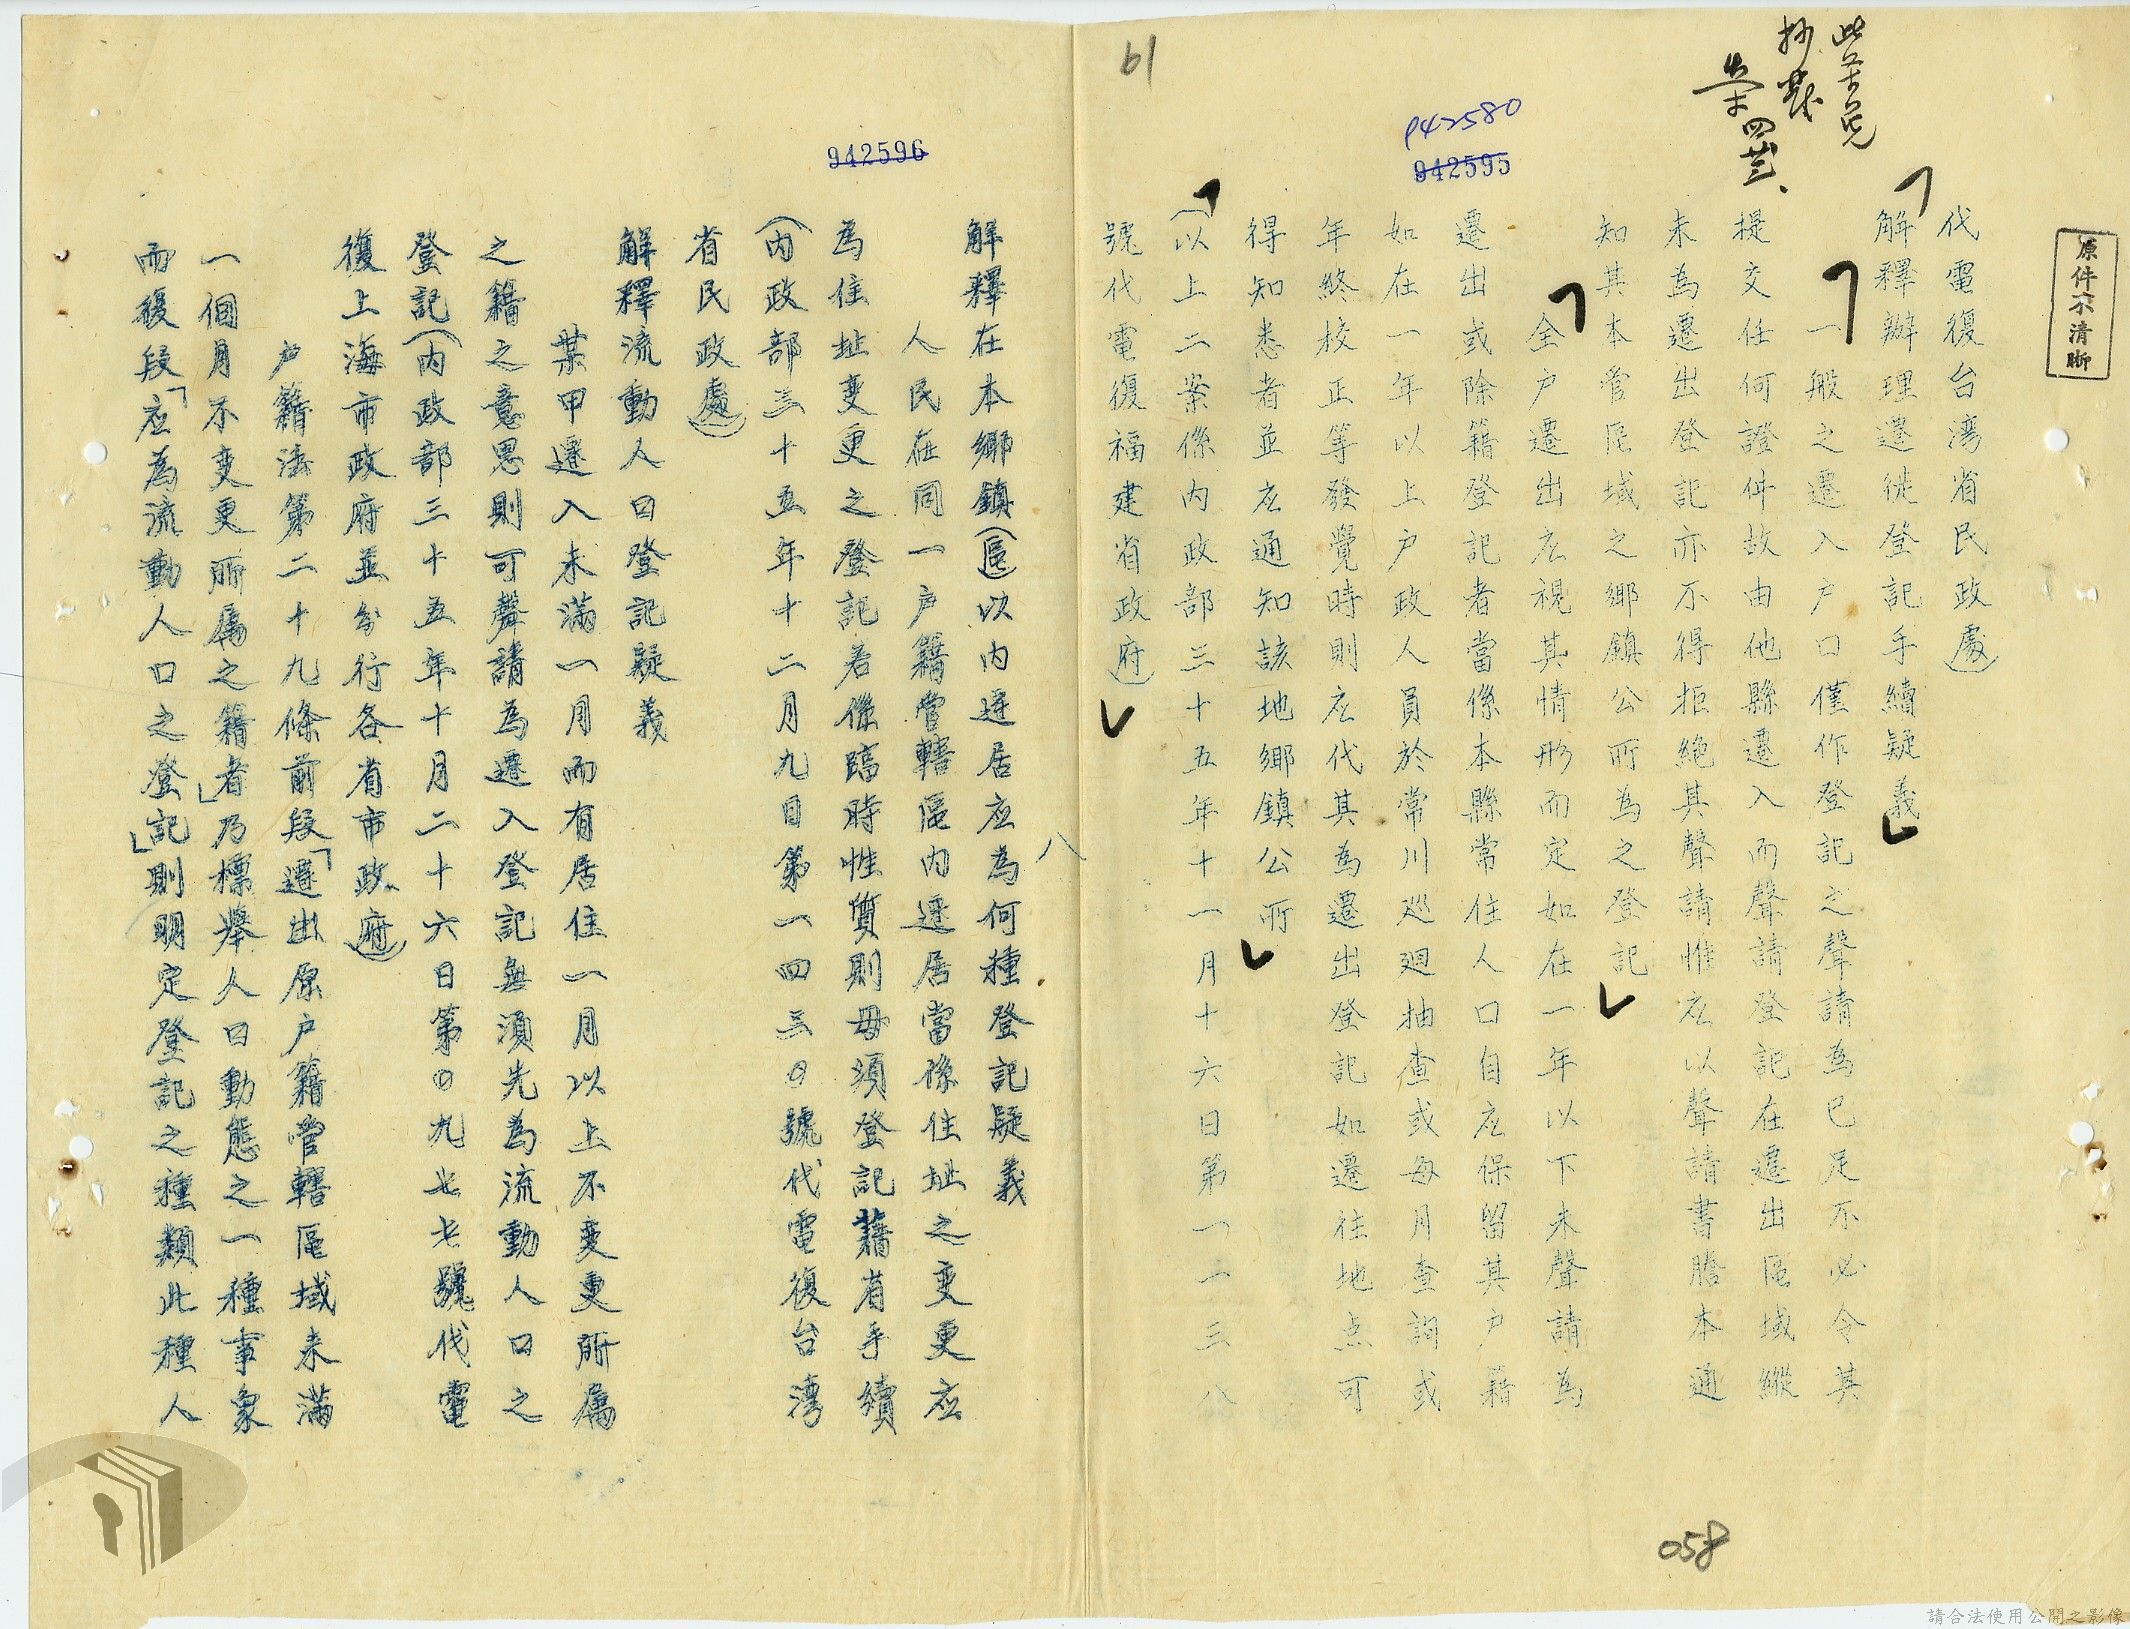 原件不清晰
抄發
61
P42580
942595
代電復台湾省民政處）
解釋辦理遷徙登記手續疑義
一般之遷入户口僅作登記之聲請為已足不必令其
提交任何證件故由他縣遷入而聲請登記在遷出區域縱
未為遷出登記亦不得拒絶其聲請惟应以聲請書謄本通
知其本管區域之鄉鎮公所為之登記
全户遷出应視其情形而定如在一年以下未聲請為
遷出或除籍登記者當係本縣常住人口自应保留其户籍
如在一年以上户政人員於常川廵廻抽查或每月查詢或
年終校正等發覺時則应代其為遷出登記如遷往地点可
得知悉者並应通知該地鄉鎮公所
（以上二案係内政部三十五年十一月十六日第一二三八
號代電復福建省政府）
058
942596
八
解釋在本鄉鎮（區）以内遷居应為何種登記疑義
人民在同一户籍管轄區内遷居當係住址之变更应
為住址变更之登記若係臨時性質則毋須登記藉省手續
（内政部三十五年十二月九日第一四三〇號代電復台湾
省民政處）
解釋流動人口登記疑義
某甲遷入未滿一月而有居住一月以上不变更所属
之籍之意思則可聲請為遷入登記無須先為流動人口之
登記（内政部三十五年十月二十六日第〇九七七號代電
復上海市政府並分行各省市政府）
户籍法第二十九條前段「遷出原户籍管轄區域未滿
一個月不变更所属之籍者」乃標舉人口動態之一種事象
而後段「应為流動人口之登記」則明定登記之種類此種人
請合法使用公開之影像